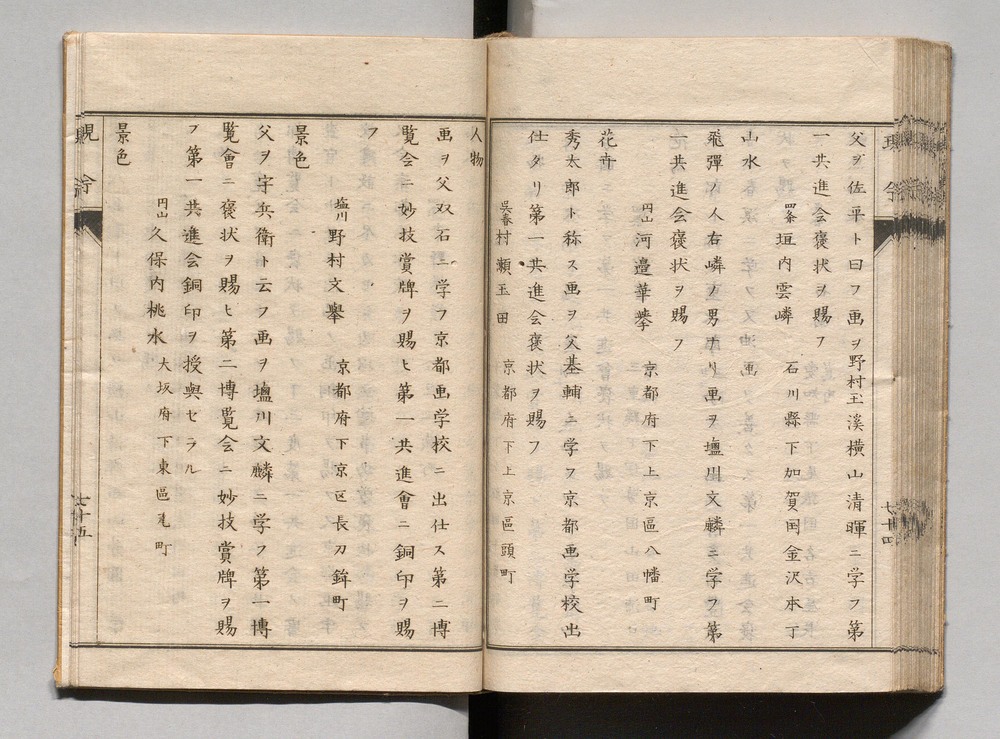 父ヲ佐平ト曰フ画ヲ野村玉溪横山清暉ニ学フ第
一共進会褒状ヲ賜フ
四条 垣内雲嶙 石川縣下加賀国金沢本丁
山水
飛彈ノ人右嶙ノ男ナリ画ヲ塩川文麟ニ学フ第
一共進会褒状ヲ賜フ
円山 河邉華擧 京都府下上京區八幡町
花卉
秀太郎ト称ス画ヲ父基輔ニ学フ京都画学校出
仕タリ第一共進会褒状ヲ賜フ
呉春 村瀬玉田 京都府下上京區頭町
七十四
人物
画ヲ父双石ニ学フ京都画学校ニ出仕ス第二博
覧会ニ妙技賞牌ヲ賜ヒ第一共進會ニ銅印ヲ賜
フ
塩川 野村文擧 京都府下京区長刀鉾町
景色
父ヲ宇兵衛ト云フ画ヲ塩川文麟ニ学フ第一博
覧會ニ褒状ヲ賜ヒ第二博覧会ニ妙技賞牌ヲ賜
フ第一共進会銅印ヲ授與セラル
円山 久保内桃水 大坂府下東區瓦町
景色
七十五